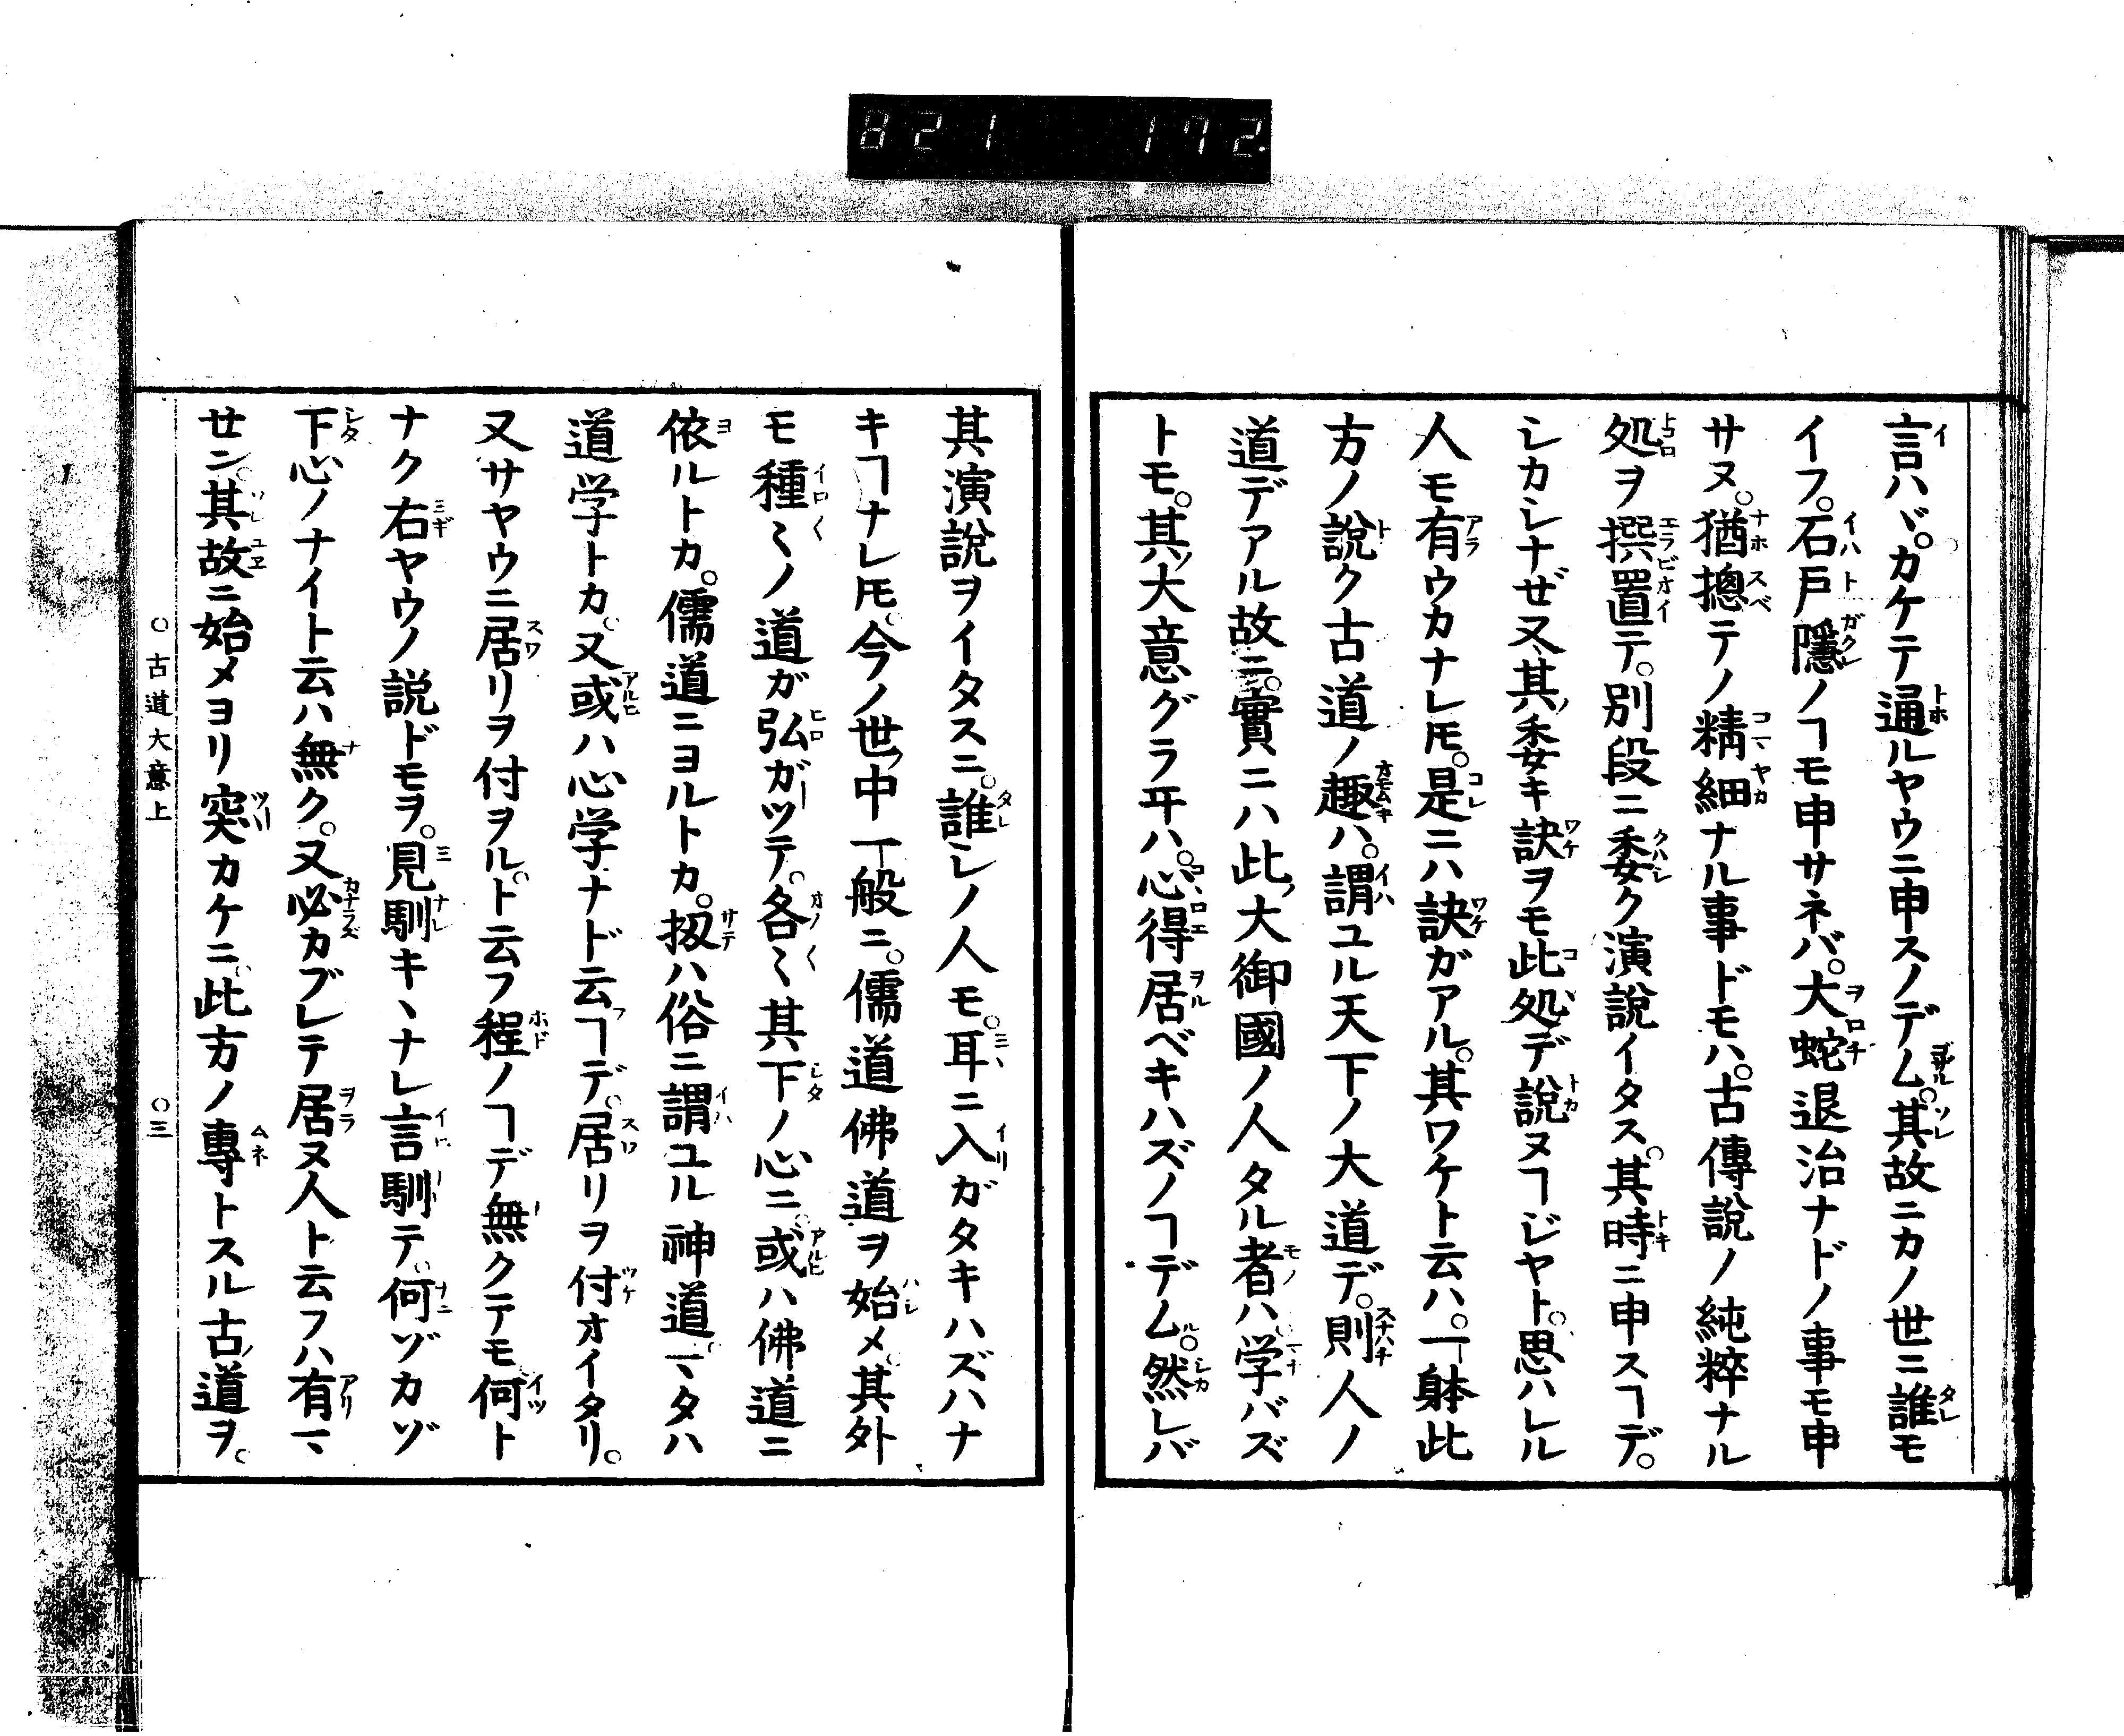 821 172
言ハヾ。カケテ通ルヤウニ申スノデム。其故ニカノ世ニ誰モ
イフ。石戸隱ノヿモ申サネバ。大蛇退治ナドノ事モ申
サヌ。猶摠テノ精細ナル事ドモハ。古傳說ノ純粹ナル
処ヲ撰置テ。別段ニ委ク演說イタス。其時ニ申スヿデ。
シカシナゼ又其ノ委キ訣ヲモ此処デ說ヌヿジヤト。思ハレル
人モ有ウカナレ𪜈。是ニハ訣ガアル。其ワケト云ハ。一躰此
方ノ說ク古道ノ趣ハ。謂ユル天下ノ大道デ。則人ノ
道デアル故ニ。實ニハ此ノ大御國ノ人タル者ハ。学バズ
トモ。其ノ大意グラヰハ。心得居ベキハズノヿデム。然レバ
其演說ヲイタスニ。誰レノ人モ。耳ニ入ガタキハズハナ
キヿナレ𪜈。今ノ世ノ中一般ニ。儒道佛道ヲ始メ。其外
モ種〻ノ道ガ弘ガツテ。各〻其下ノ心ニ。或ハ佛道ニ
依ルトカ。儒道ニヨルトカ。扨ハ俗ニ謂ユル神道。マタハ
道学トカ。又或ハ心学ナド云フヿデ。居リヲ付オイタリ。
又サヤウニ居リヲ付ヲル。ト云フ程ノヿデ無クテモ何ト
ナク右ヤウノ説ドモヲ。見馴キヽナレ言馴テ。何ゾカゾ
下心ノナイト云ハ無ク。又必カブレテ居ヌ人ト云フハ有マ
セン。其故ニ始メヨリ突カケニ。此方ノ專トスル古道ヲ。
○古道大意上 ○三